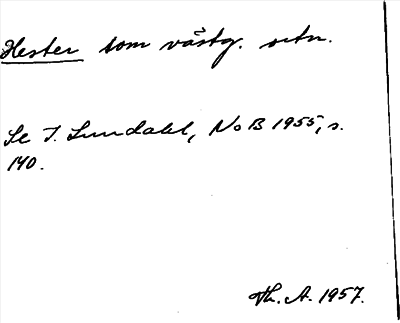 Hester som västg. ortn.
Se I. Lundahl, NoB 1955, s.
140.
Th. A. 1957.